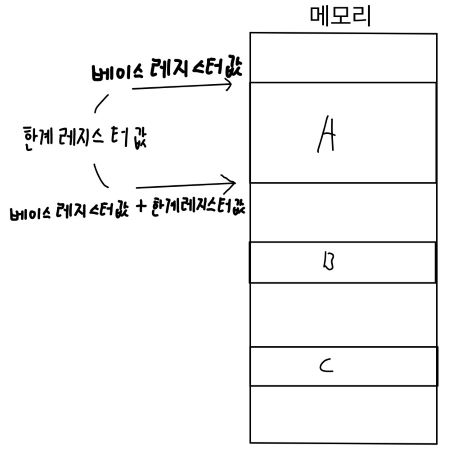 메모리
베이스 레지스터 값
A
한계 레지스터 값
베이스 레지스터 값 + 한계레지스터 값
B
C